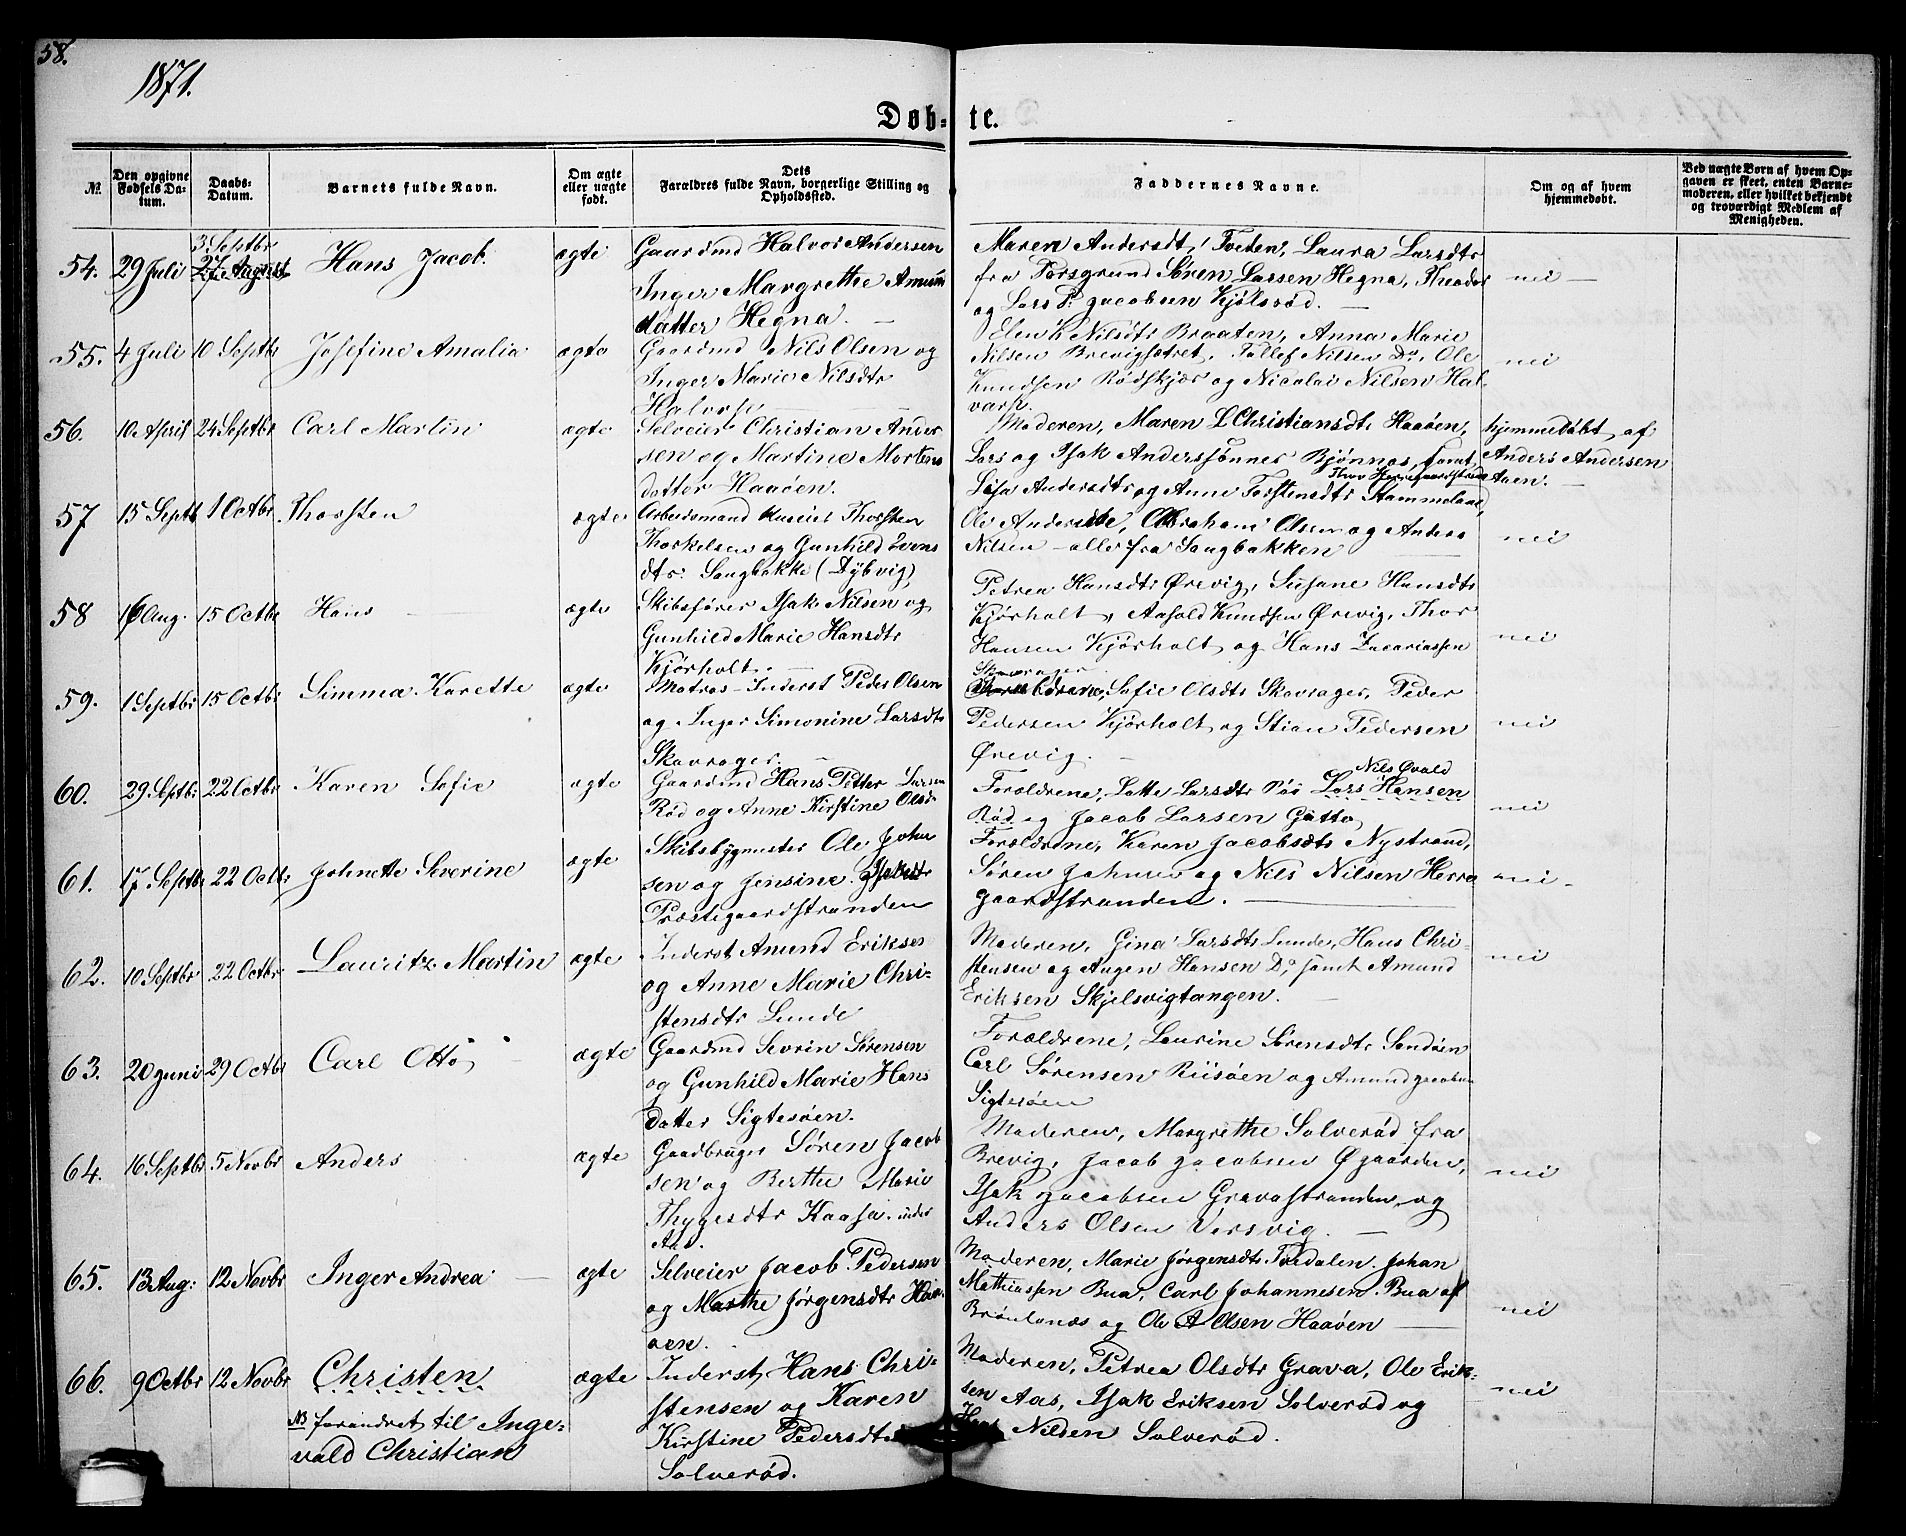 58.
1871.
Døb- te.
№.
Den opgivne Fødsels Da- tum.
Daabs- Datum.
Barnets fulde Navn.
Om ægte eller uægte født.
Dets Forældres fulde Navn, borgerlige Stilling og Opholdssted.
Faddernes Navne.
Om og af hvem hjemmedøbt.
Ved uægte Børn af hvem Op- gaven er skeet, enten Barne- moderen, eller hvilket bekjendt og troværdigt Medlem af Menigheden.
54. 29 Juli 3 Septbr 27 August Hans Jacob. ægte
Gaardmd Halvor Andersen
Inger Margrethe Amund
datter Hegna. —
Maren Andersdt, Tveten, Laura Larsdtr
fra Porsgrund Søren Larsen Hegna, Theodor
og Lars P. Jacobsen Kjølsrød. —
nei —
55. 4 Juli 10 Septbr Josefine Amalia ægte
Gaardmd Nils Olsen og
Inger Marie Nilsdtr
Halvarp
Elen K Nilsdtr Braaten, Anna Marie
Nilsen Brevigsætret, Tollef Nilsen Do, Ole
Knudsen Rødskjær og Nicolai Nilsen Hal-
varp.
nei
56. 10 April 24 Septbr Carl Martin ægte
Selveier Christian Ander
sen og Martine Mortens
datter Haaøen.
Moderen, Maren L Christiansdtr Haaøen,
Lars og Isak Anderssønner Bjønnes, samt
hjemmedøbt af
Anders Andersen
Aaen. —
57 15 Septb 1 Octbr Thorsten ægte
Arbeidsmand Thorsten
Thorkelsen og Gunhild Evens
dtr: Sangbakke (Dybvig)
Lisa Andersdtr og Anne Torstensdtr Stammeland,
Ole Anderssen, Abraham Olsen og Anders
Nilsen — alle fra Sangbakken
nei
58 16 Aug. 15 Octbr Hans — ægte
Skibsfører Isak Nilsen og
Gunhild Marie Hansdtr
Kjørholt. —
Petrea Hansdtr Ørevig, Susane Hansdtr
Kjørholt, Aasold Knudsen Ørevig, Thor
Hansen Kjørholt og Hans Zacariassen
Skavrager
nei
59. 1 Septbr 15 Octbr Simma Karette ægte
Matros-Inderst Peder Olsen
og Inger Simonine Larsdtr
Skavrager. —
Forældrene, Sofie Olsdtr Skavrager, Peder
Pedersen Kjørholt og Stian Pedersen
Ørevig. —
nei
60. 29 Septbr: 22 Octbr Karen Sofie ægte
Gaardmd Hans Petter Larsen
Rød og Anne Kirstine Olsd.
Nils Øvald
Forældrene, Lotte Larsdtr Lars Hansen
Rød og Jacob Larsen Gatto
nei
61. 17 Septbr 22 Octbr Johnette Severine ægte
Skibsbygmester Ole John
sen og Jensine Isaksdtr
Præstegaardstranden
Forældrene, Karen Jacobsdtr Nystrand,
Søren Johnsen og Nils Nilsen Herre
gaardstranden. —
nei —
62. 10 Septbr 22 Octbr Lauritz Martin ægte
Inderst Amund Eriksen
og Anne Marie Chri-
stensdtr Lunde
Moderen, Gina Larsdtr Lunde, Hans Chri-
stensen og Augen Hansen Do, samt Amund
Eriksen Skjelsvigtangen. —
nei
63. 20 Juni 29 Octbr Carl Otto — ægte
Gaardmd Sevrin Sørensen
og Gunhild Marie Hans
datter Sigtesøen.
Forældrene, Laurine Sørensdtr Sandøen
Carl Sørensen Riisøen og Amund Jacobsen
Sigtesøen
64. 16 Septbr 5 Novbr Anders ægte
Gaadbruger Søren Jacob
sen og Berthe Marie
Thygesdtr Kaasa under
Aas.
Moderen, Margrethe Solverød fra
Brevig, Jacob Jacobsen Øgaarden,
Isak Jacobsen Gravastranden og
Anders Olsen Versvig. —
nei
65. 13 Aug: 12 Novbr Inger Andrea — ægte
Selveier Jacob Pedersen
og Marthe Jørgensdtr Haa-
øen.
Moderen, Marie Jørgensdtr Tvedalen. Johan
Mathiassen Bua, Carl Johannesen Bua af
Brunlanæs og Ole A Olsen Haaøen —
nei
66. 9 Octbr 12 Novbr Christen ægte
NB forandret til Inge-
vald Christian
Inderst Hans Chri-
stensen og Karen
Kirstine Pedersdtr
Solverød.
Moderen, Petrea Olsdtr Grava, Ole Erik-
sen Aas, Isak Eriksen Solverød og
Hans Nilsen Solverød.
nei